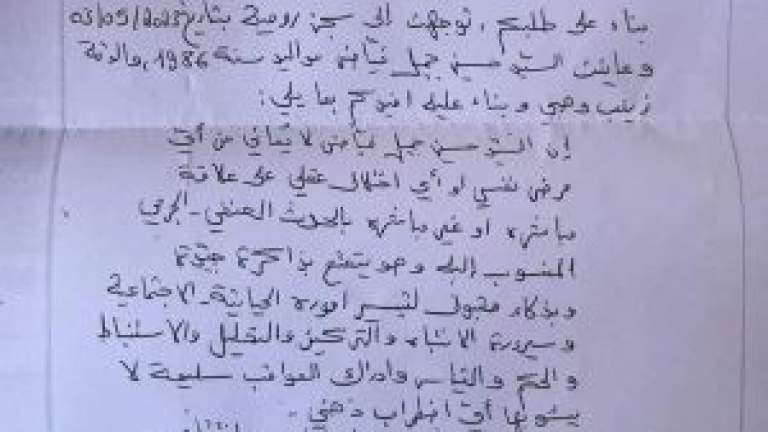 بناء على طلبكم، توجهت إلى سجن رومية بتاريخ 03/05/2023
وعاينت السيد حسين جميل فياض مواليد سنة 1986، والدته
زينب وهبي وبناء عليه افيدكم بما يلي:
إن السيد حسين جميل فياض لا يعاني من أي
مرض نفسي او أي اختلال عقلي على علاقة
مباشرة او غير مباشرة بالحدث العنفي - الجرمي
المنسوب إليه وهو يتمتع بذاكرة جيدة
وبذكاء مقبول لتيسير اموره الحياتية - الاجتماعية
وسيرورة الانتباه والتركيز والتحليل والاستنباط
والحكم والقياس وادراك العواقب سليمة لا
يشوبها أي اضطراب ذهني.